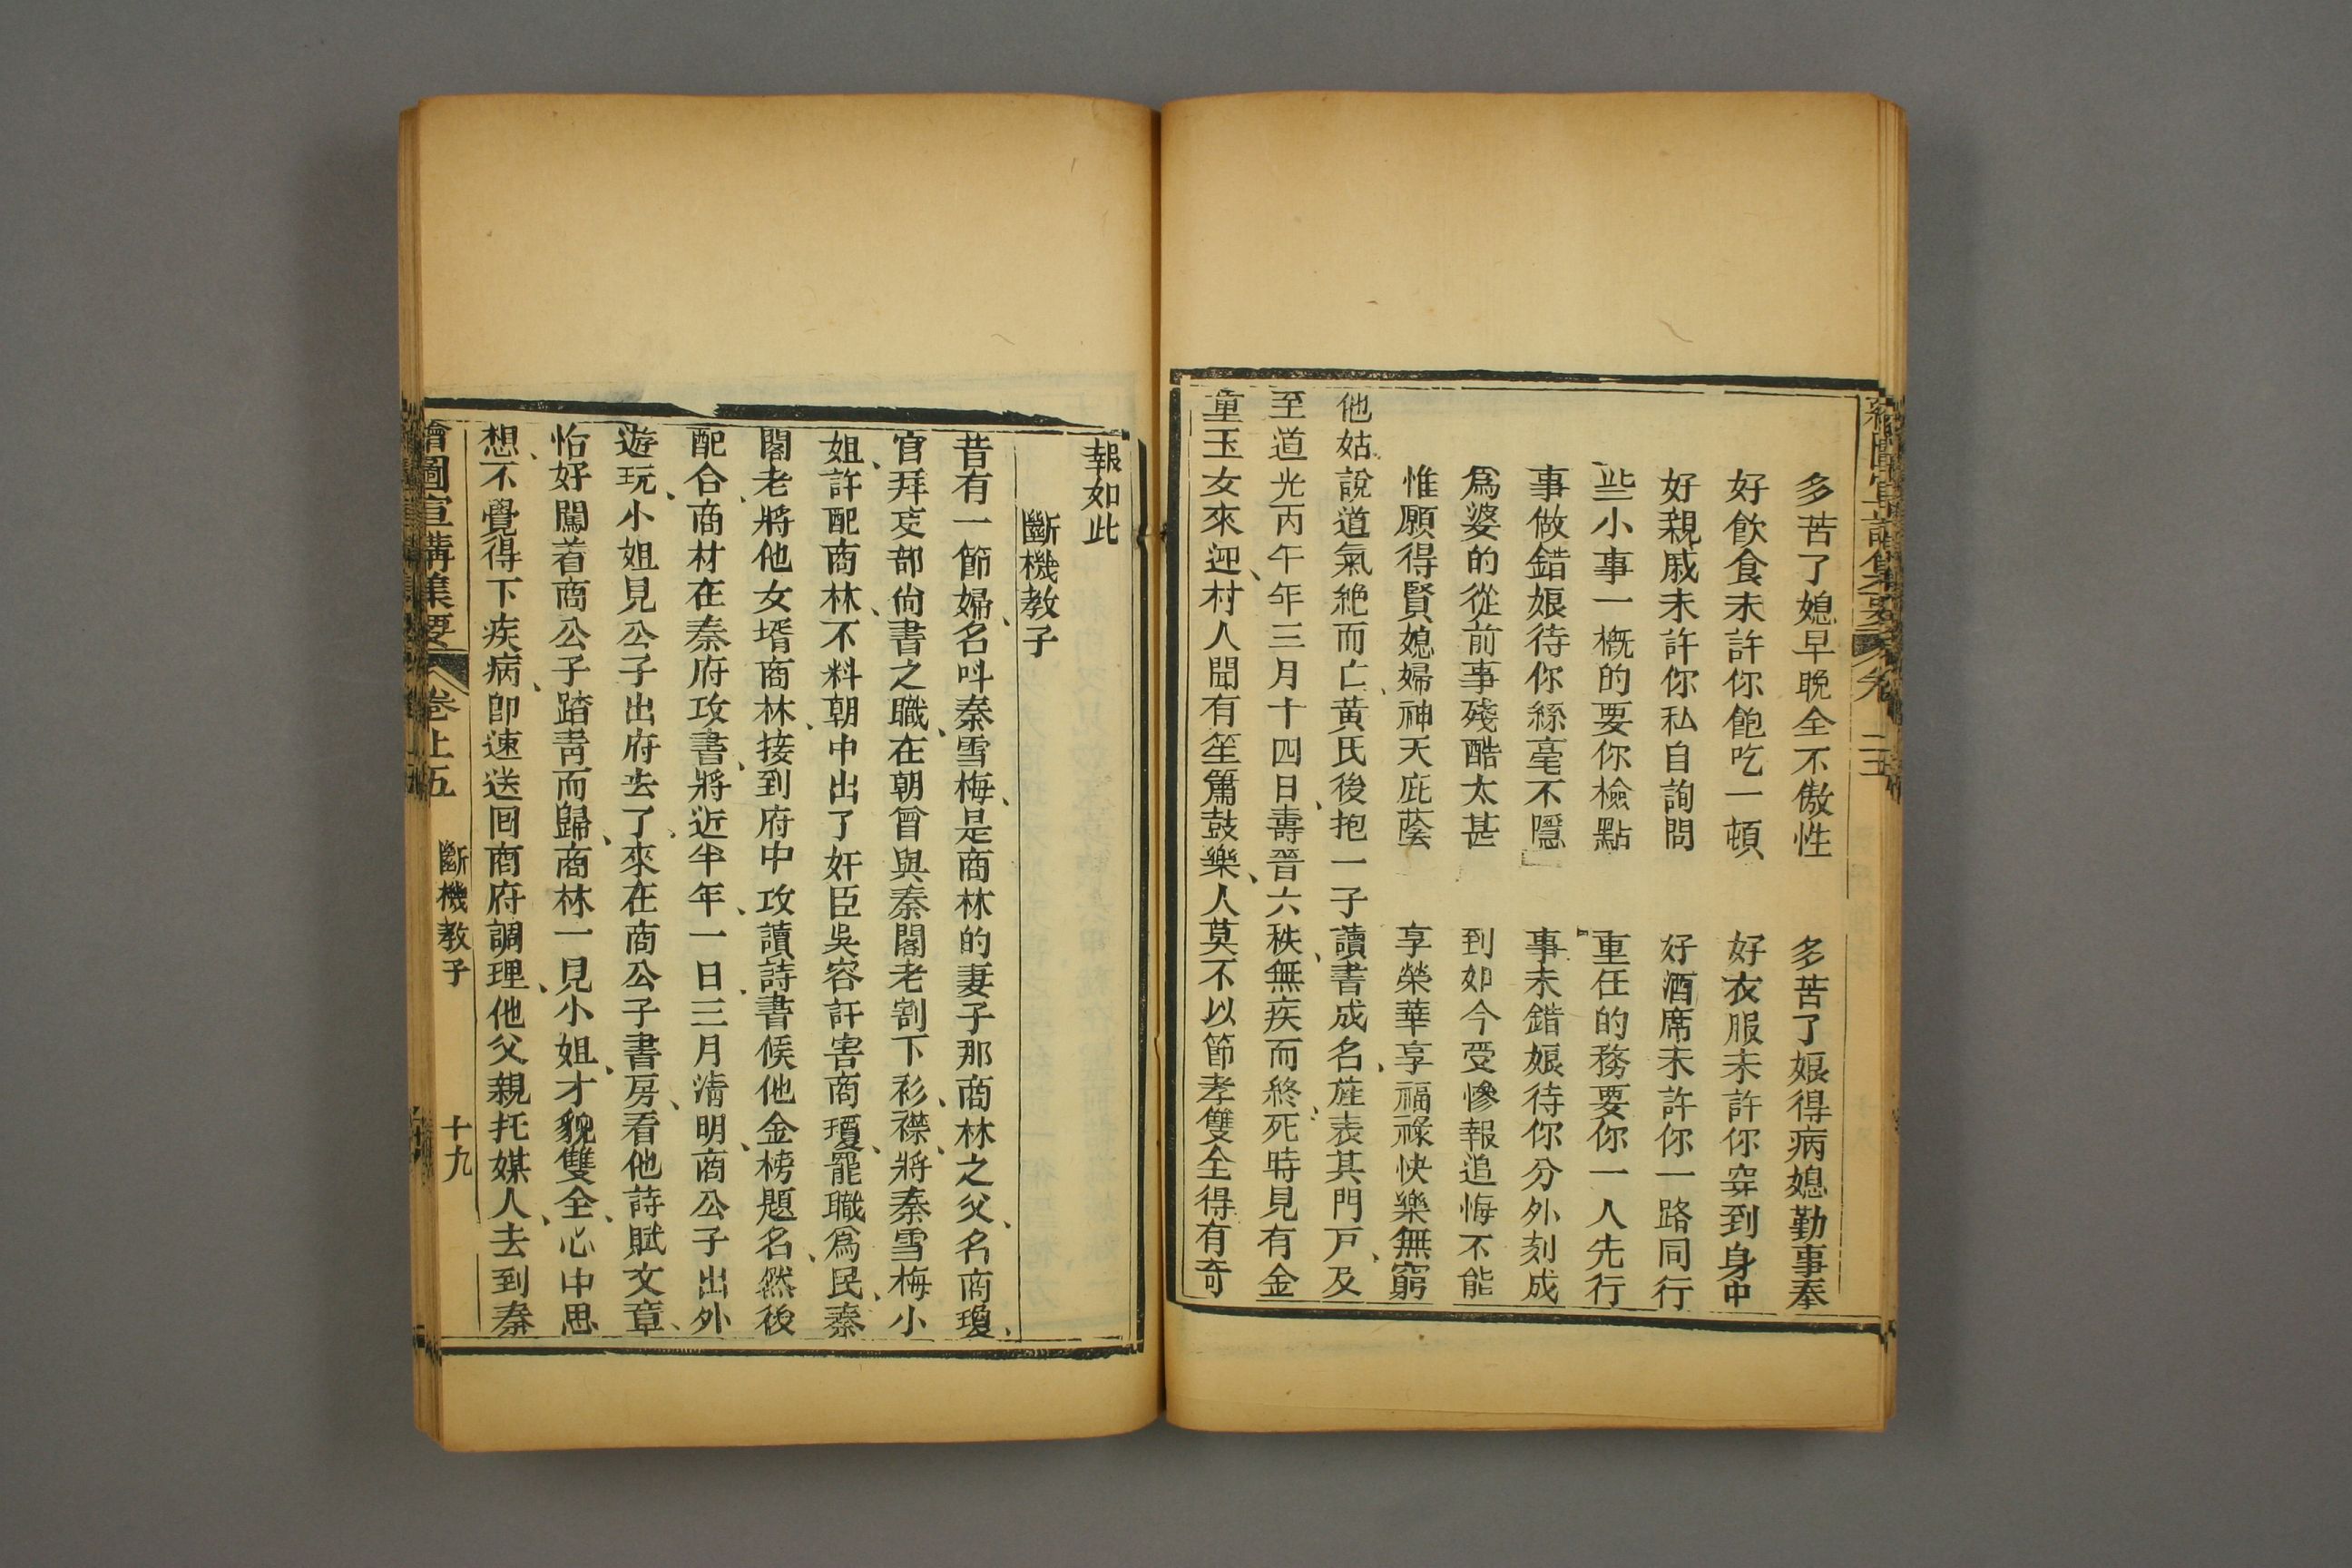 多苦了媳早晚全不傲性　多苦了娘得病媳勤事奉
好飲食未許你飽吃一頓　好衣服未許你穿到身中
好親戚未許你私自詢問　好酒席未許你一路同行
些小事一概的要你檢點　重任的務要你一人先行
事做錯娘待你絲毫不隱　事未錯娘待你分外刻成
爲婆的從前事殘酷太甚　到如今受慘報追悔不能
惟願得賢媳婦神天庇蔭　享榮華享福祿快樂無窮
他姑說道氣絶而亡、黃氏後抱一子、讀書成名、旌表其門戸、及
至道光丙午年三月十四日、壽晉六秩、無疾而終、死時見有金
童玉女來迎、村人聞有笙簫鼓樂、人莫不以節孝雙全得有奇
報如此
斷機教子
昔有一節婦、名呌秦雪梅、是商林的妻子那商林之父、名商瓊、
官拜吏部尙書之職、在朝曾與秦閣老割下衫襟、將秦雪梅小
姐、許配商林、不料朝中出了奸臣吳容訐害商瓊、罷職爲民、秦
閣老、將他女壻商林、接到府中攻讀詩書候他金榜題名、然後
配合、商材在秦府攻書、將近半年、一日三月淸明、商公子出外
遊玩、小姐見公子出府去了、來在商公子書房、看他詩賦文章、
恰好闖着商公子踏靑而歸、商林一見小姐、才貌雙全、心中思
想、不覺得下疾病、卽速送回商府調理、他父親托媒人、去到秦
繪圖宣講集要　卷上五　斷機教子　十九